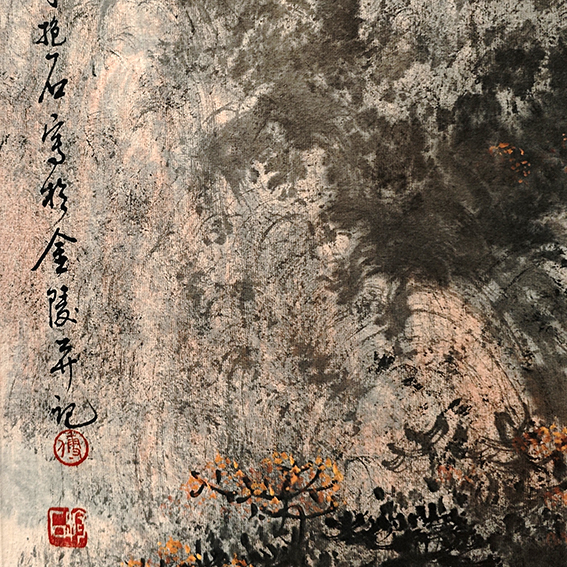 抱石寫於金陵並記